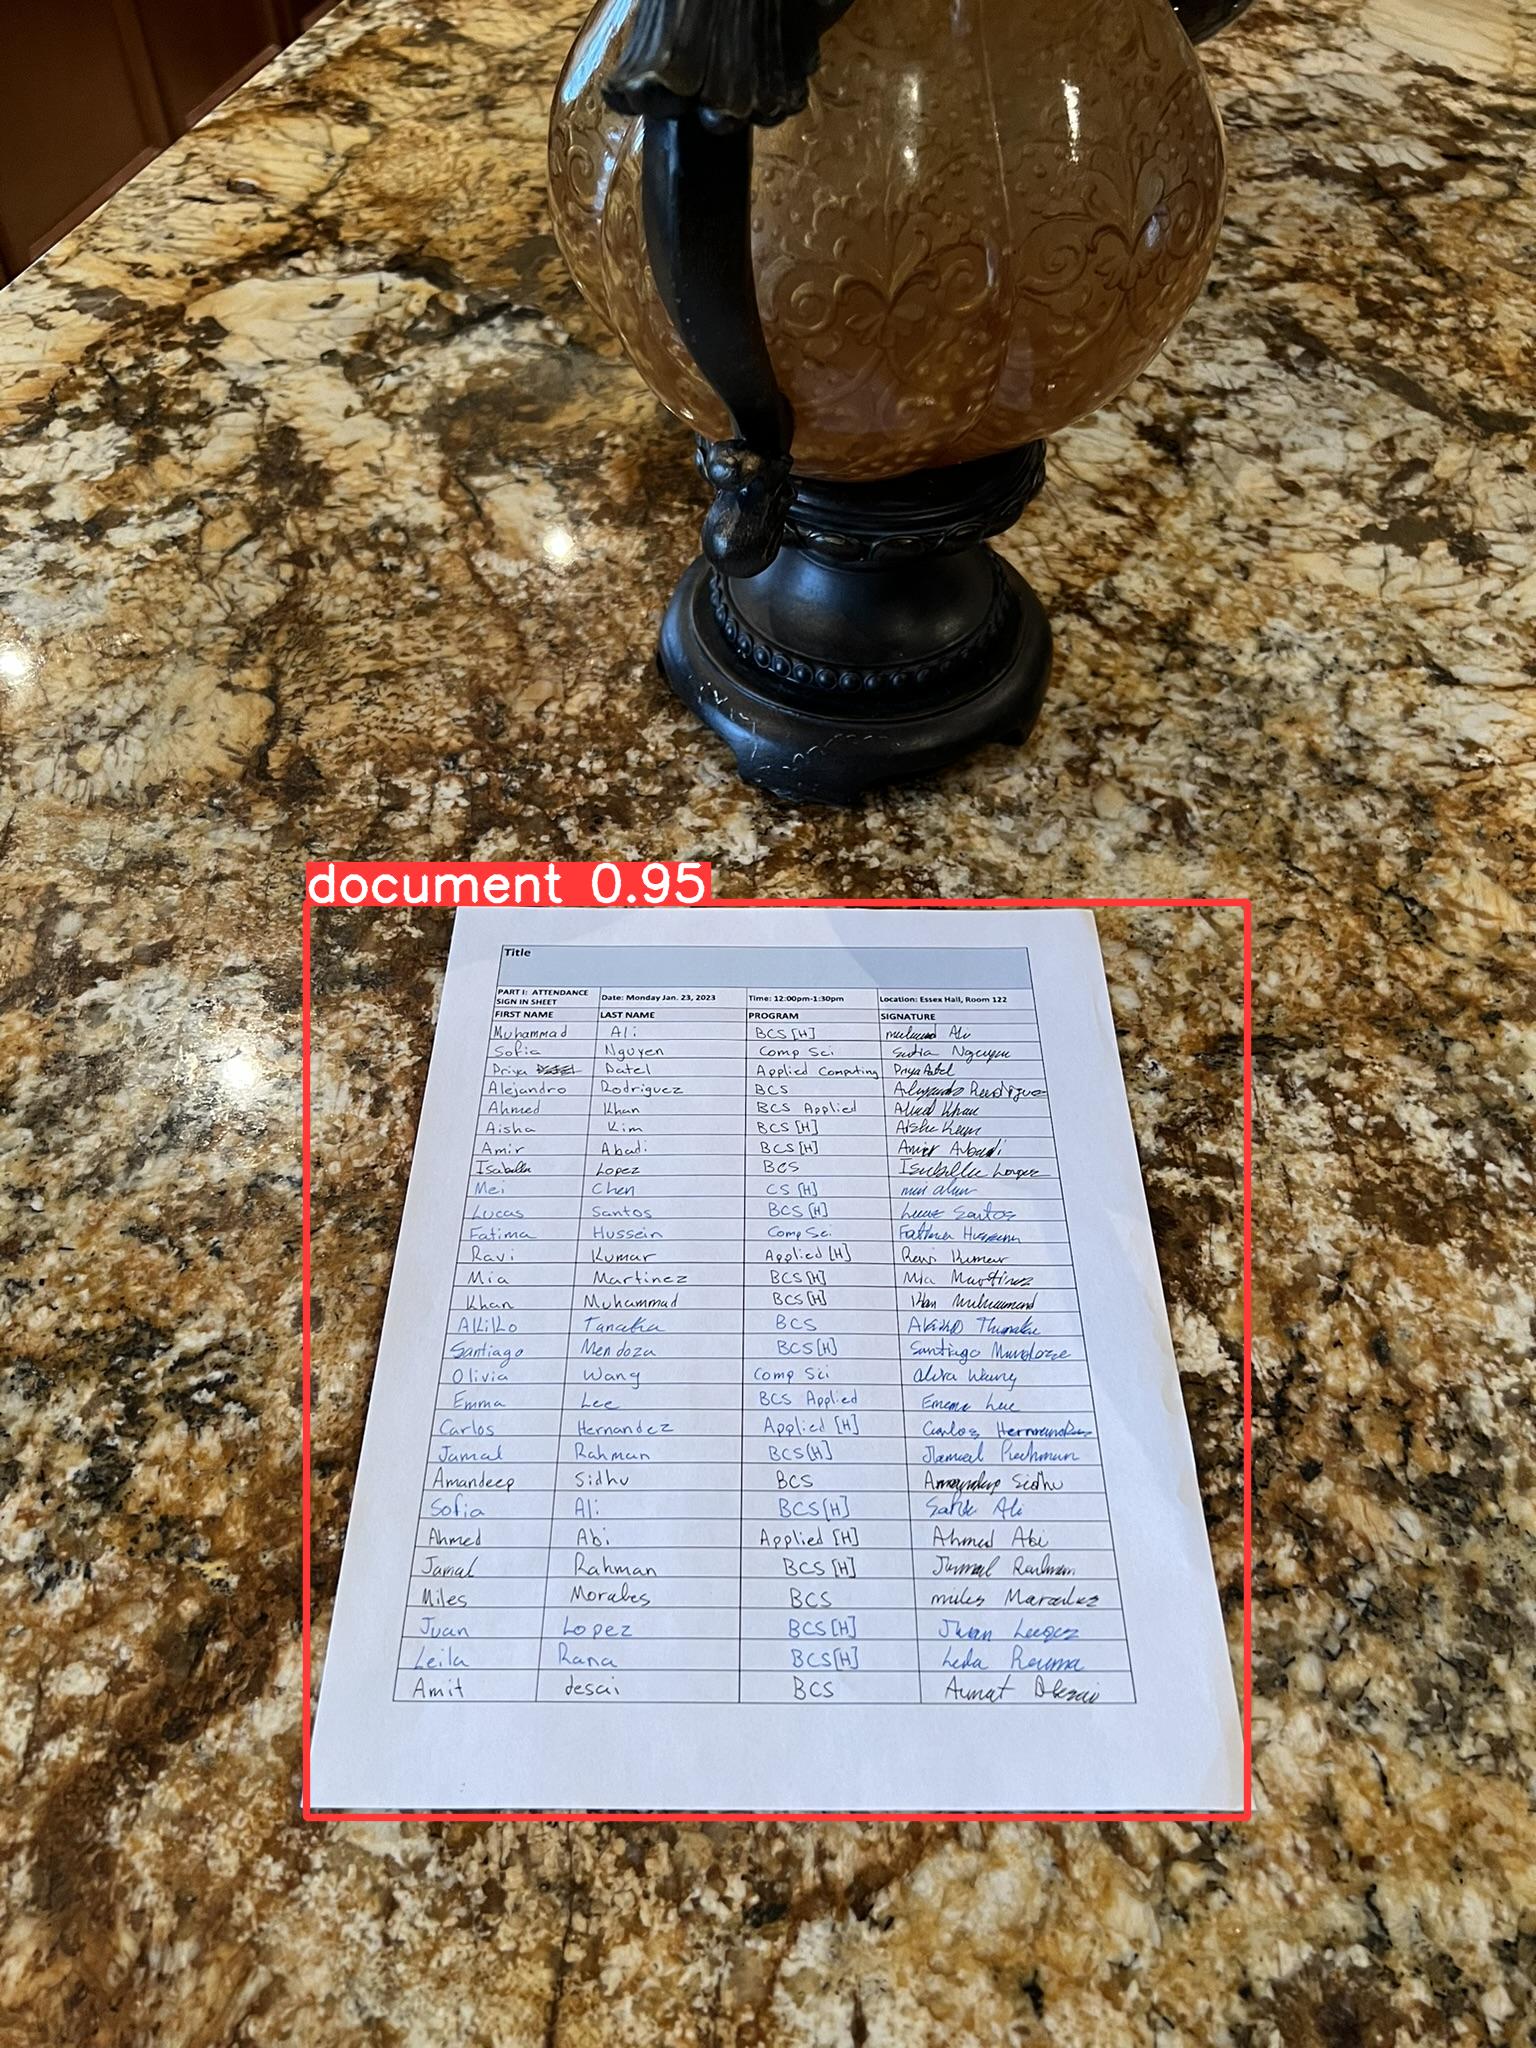 document 0.95
Title
PART I: ATTENDANCE SIGN IN SHEET Date: Monday Jan. 23, 2023 Time: 12:00pm-1:30pm Location: Essex Hall, Room 122
FIRST NAME LAST NAME PROGRAM SIGNATURE
Muhammad Ali BCS [H] Ali
Sofia Nguyen Comp Sci Sofia Nguyen
Priya Patel Applied Computing Priya Patel
Alejandro Rodriguez BCS Alejandro Rodriguez
Ahmed Khan BCS Applied Ahmed Khan
Aisha Kim BCS [H] Aisha Kim
Amir Abadi BCS [H] Amir Abadi
Isabella Lopez BCS Isabella Lopez
Mei Chen CS [H]
Lucas Santos BCS [H] Lucas Santos
Fatima Hussein Comp Sci Fatima Hussein
Ravi Kumar Applied [H] Ravi Kumar
Mia Martinez BCS [H] Mia Martinez
Khan Muhammad BCS [H] Khan Muhammad
Akiko Tanaka BCS Akiko Tanaka
Santiago Mendoza BCS [H] Santiago
Olivia Wang Comp Sci Wang
Emma Lee BCS Applied Emma Lee
Carlos Hernandez Applied [H] Carlos Hernandez
Jamal Rahman BCS [H] Jamal Rahman
Amandeep Sidhu BCS Amandeep Sidhu
Sofia Ali BCS [H] Ali
Ahmed Abi Applied [H] Ahmed Abi
Jamal Rahman BCS [H] Jamal Rahman
Miles Morales BCS miles
Juan Lopez BCS [H] Juan
Leila Rana BCS [H]
Amit desai BCS Desai